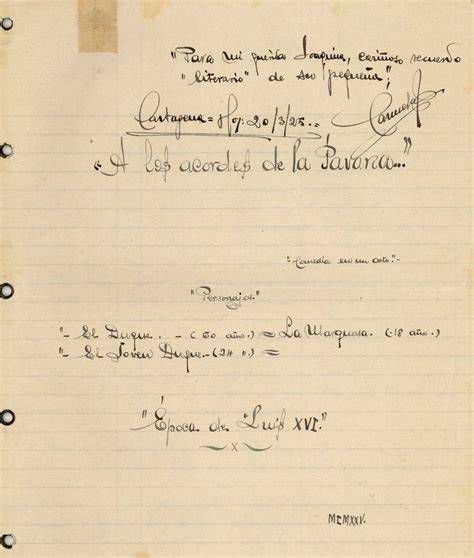 "Para mi querida Joaquina, cariñoso recuerdo
"literario" de su pequeña";
Cartagena = Hoy: 20/3/25..=
Carmela
"A los acordes de la Pavana..."
"Comedia en un acto."-
"Personajes."
"- El Duque. - (60 años.) = La Marquesa. (-18 años.)
"- El Joven Duque.-(24 ".) =
"Época de "Luis XVI."
x
MCMXXV.